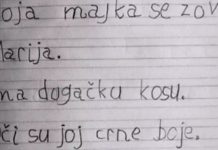 oja majka se zov
arija.
ma dugačku kosu.
či su joj crne boje.